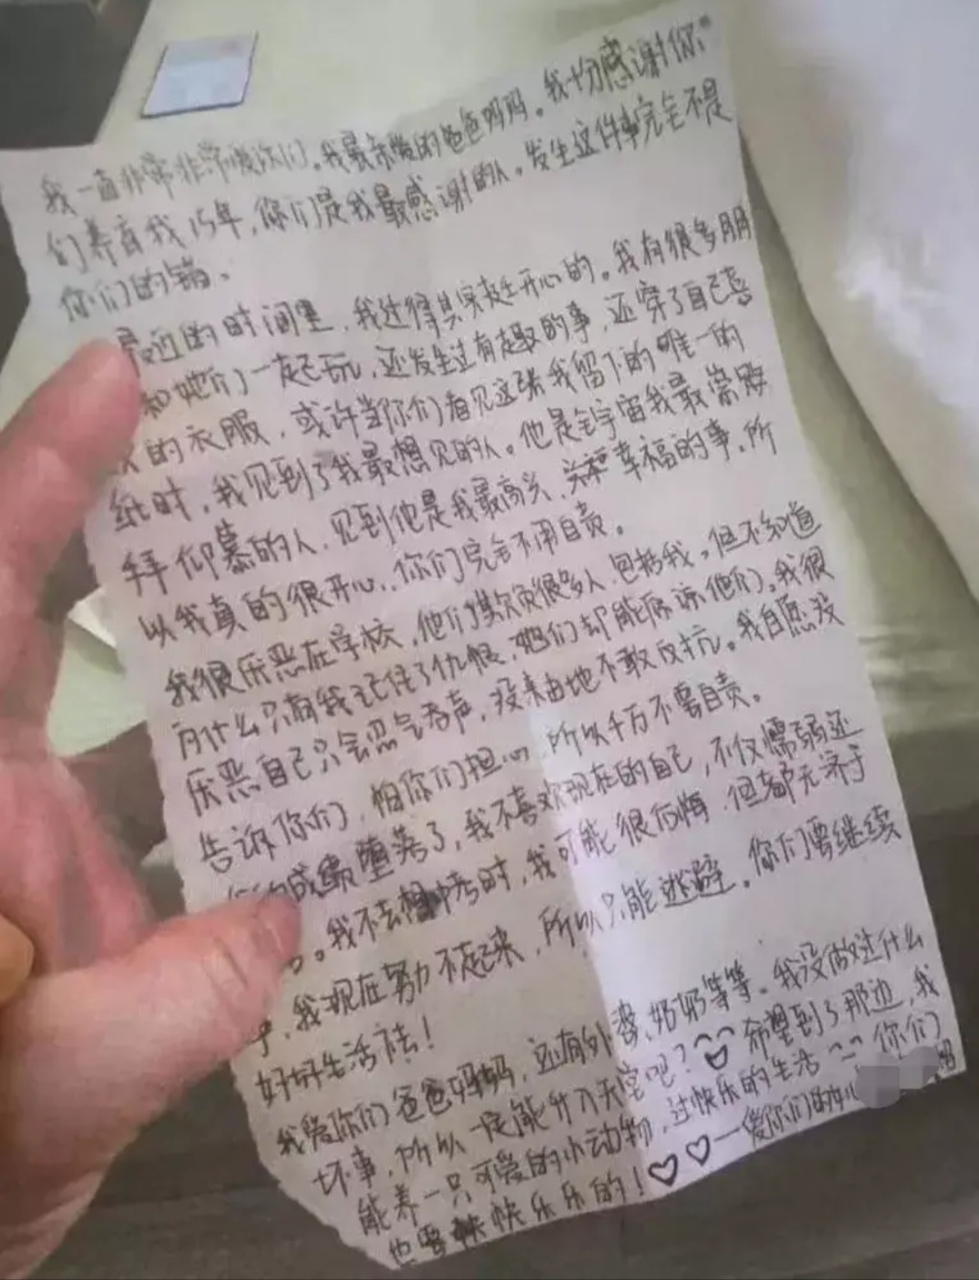 我一直非常非常爱你们。我最亲爱的爸爸妈妈。我十分感谢你
们养育我15年,你们是我最感谢的人。发生这件事完全不是
你们的错。
最近的时间里,我过得其实挺开心的。我有很多朋
和她们一起玩,还发生过有趣的事,还穿了自己喜
的衣服,或许当你们看见这张我留下的唯一的
纸时,我见到了我最想见的人。他是全宇宙我最崇
拜仰慕的人,见到他是我最高兴、幸福的事,所
以我真的很开心,你们完全不用自责。
我很厌恶在学校,他们欺负很多人,包括我。但不知道
为什么只有我记住了仇恨,她们却能原谅他们。我很
厌恶自己只会忍气吞声,没来由地不敢反抗。我自愿没
告诉你们,怕你们担心,所以千万不要自责。
成绩堕落了,我不喜欢现在的自己,不仅懦弱还
。我不去想中考时,我可能很后悔,但都无济于
,我现在努力不起来,所以只能逃避。你们要继续
好好生活下去!
我爱你们爸爸妈妈,还有外婆、奶奶等等。我没做过什么
坏事,所以一定能升入天堂吧?希望到了那边,我
能养一只可爱的小动物,过快乐的生活 你们
也要快快乐乐的!♡♡—爱你们的